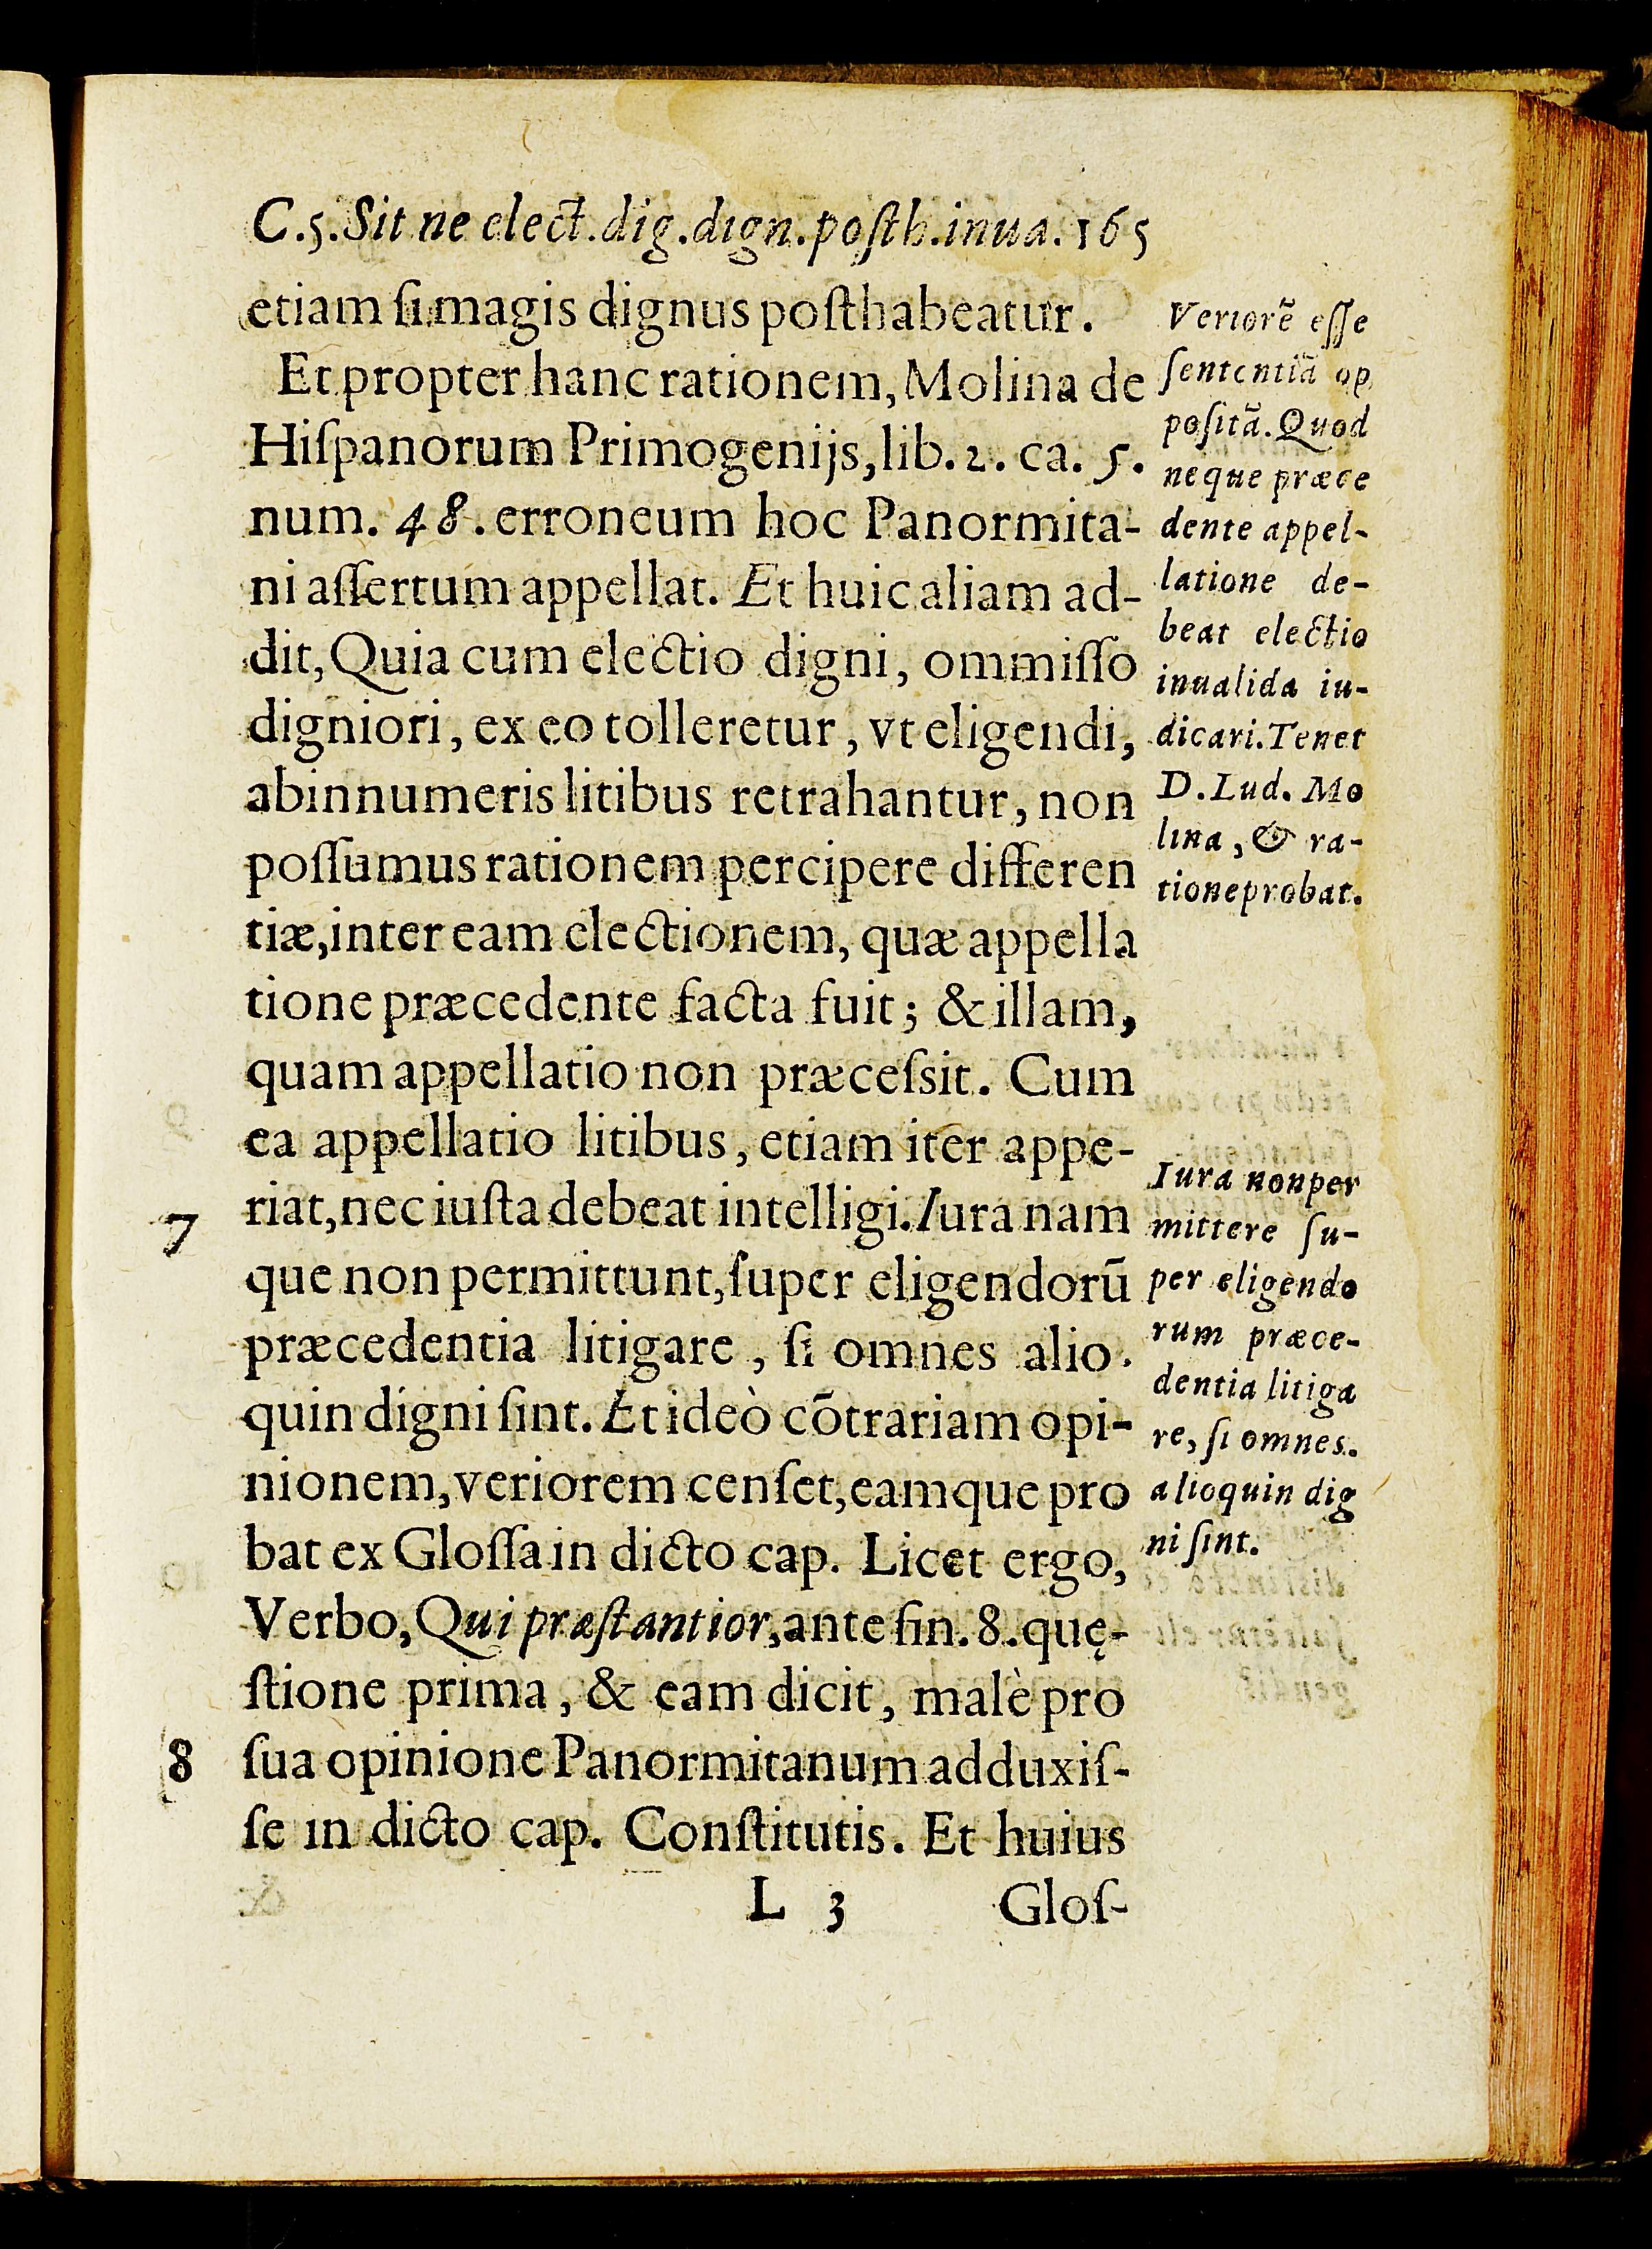 C.5.Sit ne elect.dig.dign.posth.inua.165
etiam si magis dignus posthabeatur.
Et propter hanc rationem, Molina de
Hiſpanorum Primogenijs, lib. 2. ca. 5.
num. 48. erroneum hoc Panormita-
ni aſſertum appellat. Et huic aliam ad-
dit, Quia cum electio digni, ommiſſo
digniori, ex eo tolleretur, vt eligendi,
abinnumeris litibus retrahantur, non
poſſumus rationem percipere differen
tiæ, inter eam electionem, quæ appella
tione præcedente facta fuit; & illam,
quam appellatio non præceſsit. Cum
ea appellatio litibus, etiam iter appe-
7 riat, nec iuſta debeat intelligi. Iura nam
que non permittunt, ſuper eligendorū
præcedentia litigare, ſi omnes alio-
quin digni ſint. Et ideò cōtrariam opi-
nionem, veriorem cenſet, eamque pro
bat ex Gloſſa in dicto cap. Licet ergo,
Verbo, Qui præſtantior, ante fin. 8. quę-
ſtione prima, & eam dicit, malè pro
8 ſua opinione Panormitanum adduxiſ-
ſe in dicto cap. Conſtitutis. Et huius
L 3 Gloſ-
Veriorē eſſe
ſententiā op
poſitā. Quod
neque præce
dente appel-
latione de-
beat electio
inualida iu-
dicari. Tenet
D. Lud. Mo
lina, & ra-
tione probat.
Iura non per
mittere ſu-
per eligendo
rum præce-
dentia litiga
re, ſi omnes.
alioquin dig
ni ſint.